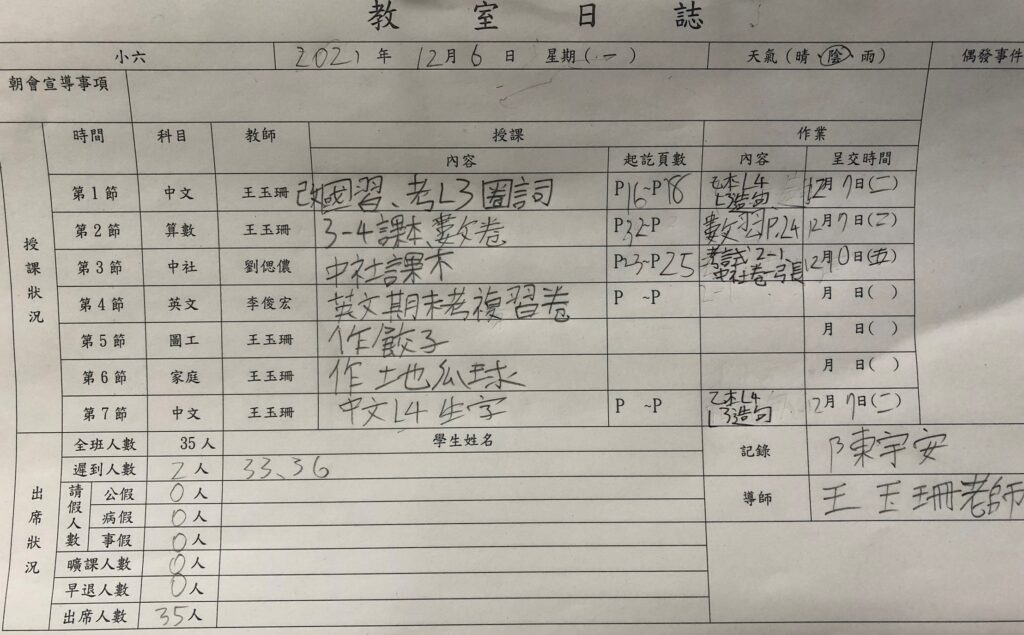 教室日誌
小六 2021年 12月 6日 星期(一) 天氣(晴 陰 雨) 偶發事件
朝會宣導事項
授課狀況 時間 科目 教師 授課 作業
內容 起訖頁數 內容 呈交時間
第1節 中文 王玉珊 改國習、考L3圈詞 P16~P18 乙本L4 L3造句 12月7日(二)
第2節 算數 王玉珊 3-4課本、數文卷 P32~P 數習P.24 12月7日(二)
第3節 中社 劉偲儂 中社課本 P23~P25 考試2-1 中社卷 12月 日(五)
第4節 英文 李俊宏 英文期末考複習卷 P ~P 月 日( )
第5節 圖工 王玉珊 作餃子 月 日( )
第6節 家庭 王玉珊 作土地瓜球 月 日( )
第7節 中文 王玉珊 中文L4生字 P ~P 乙本L4 L3造句 12月7日(二)
出席狀況 全班人數 35人 學生姓名 記錄 陳宇安
遲到人數 2人 33、36
請假人數 公假 0人 導師 王玉珊老師
病假 0人
事假 0人
曠課人數 0人
早退人數 0人
出席人數 35人